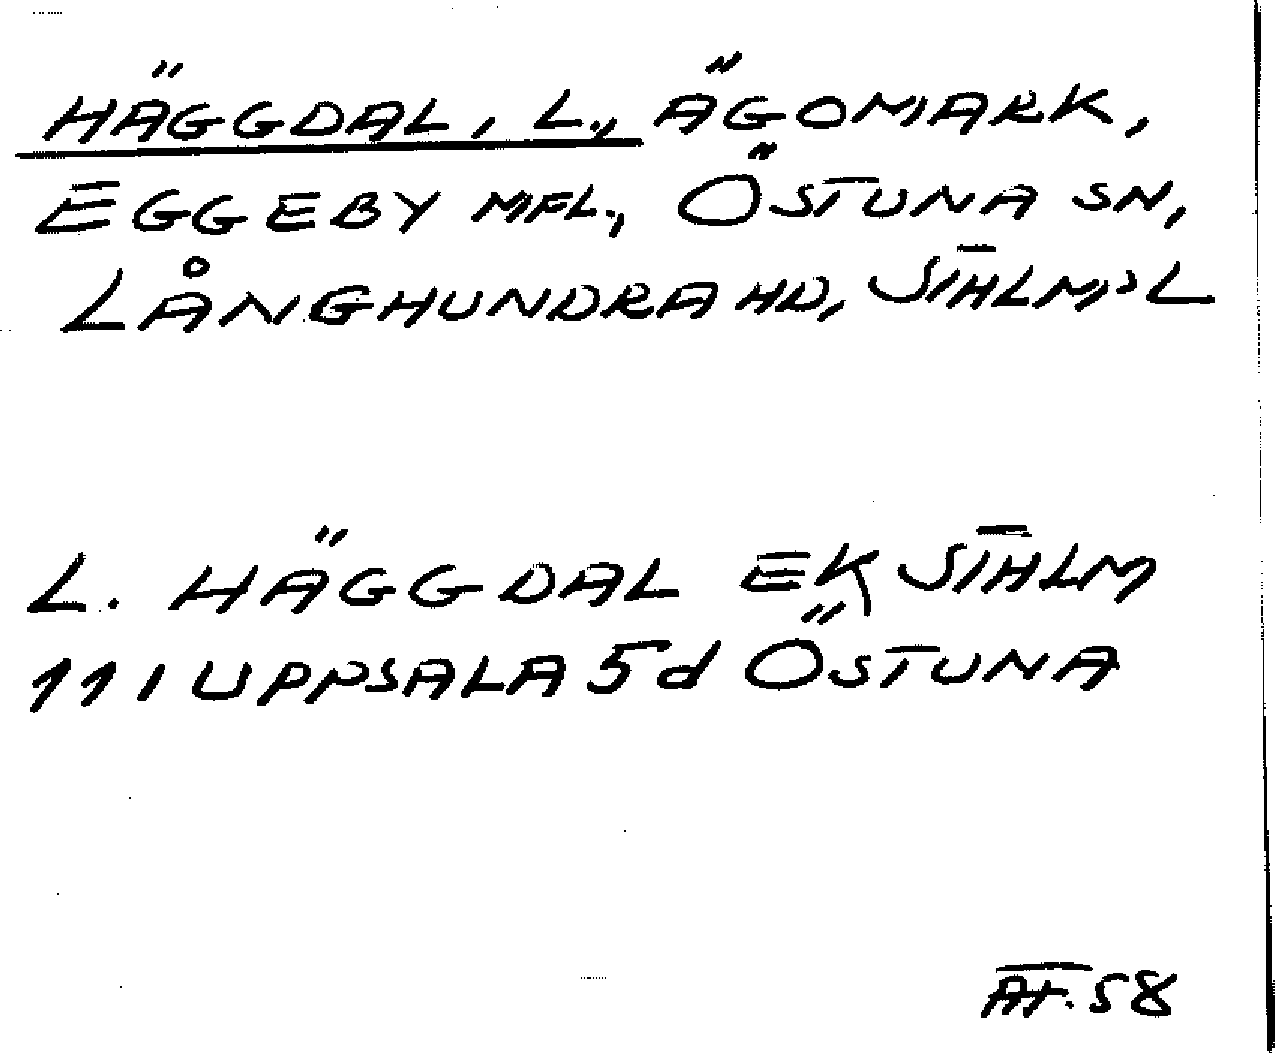 HÄGGDAL, L., ÄGOMARK,
EGGEBY MFL., ÖSTUNA SN,
LÅNGHUNDRA HD, STHLMS L
L. HÄGGDAL EK STHLM
11 I UPPSALA 5d ÖSTUNA
AT. 58